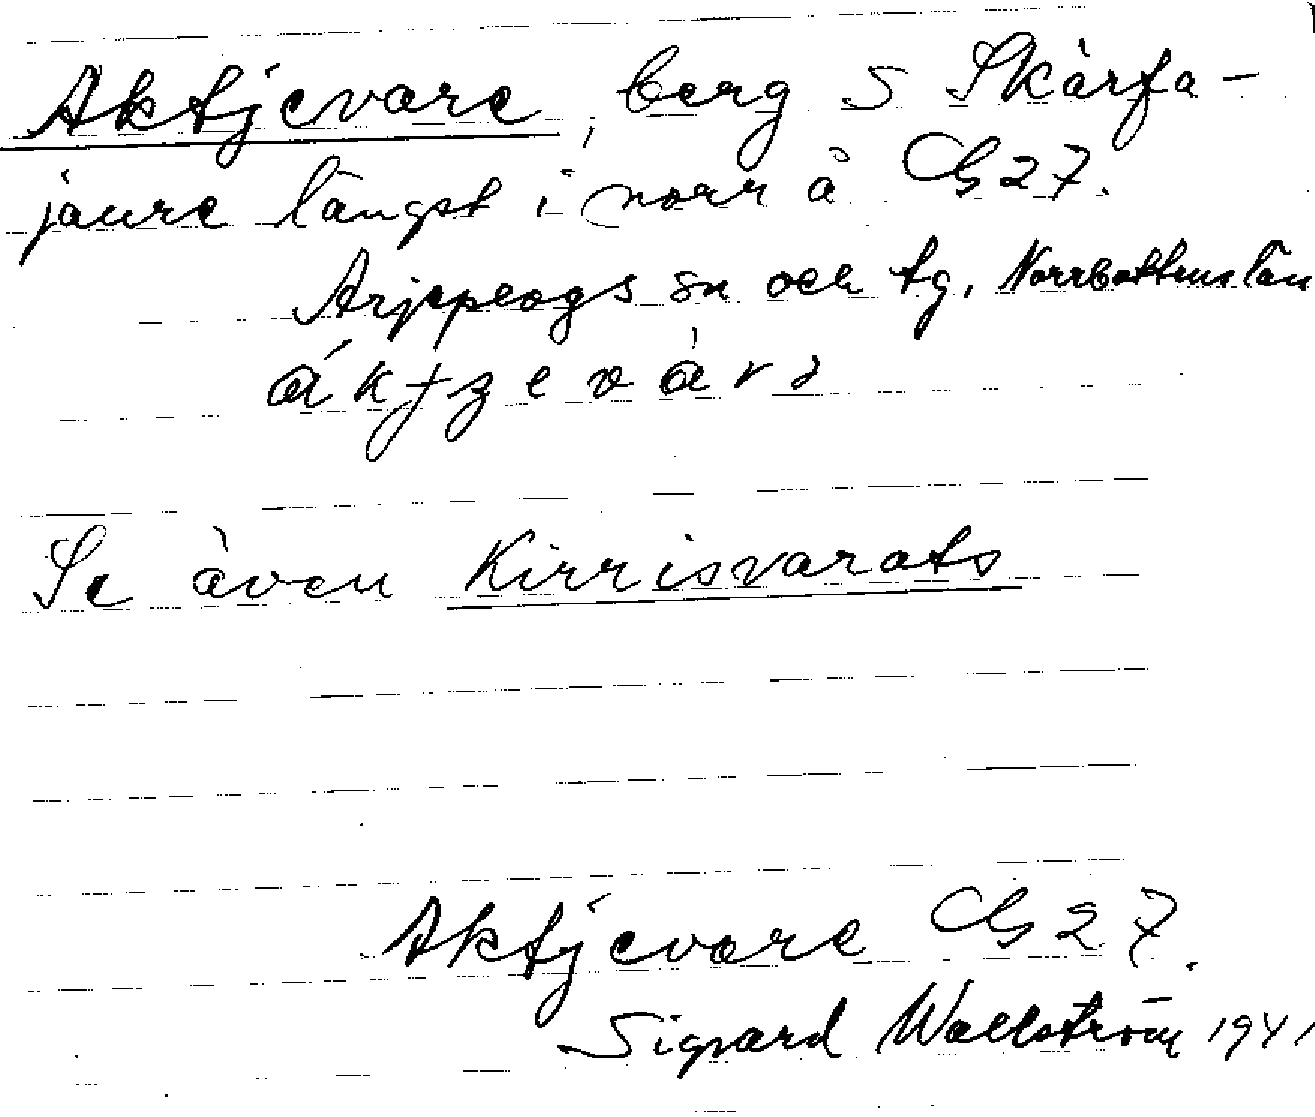 Aktjevare, berg S Skärfa-
jaure längst i norr å G27.
Arjeplogs sn och tg, Norrbottens län
áktʒevàrə
Se även Kirrisvarats
Aktjevare G27.
Sigvard Wallström 1941